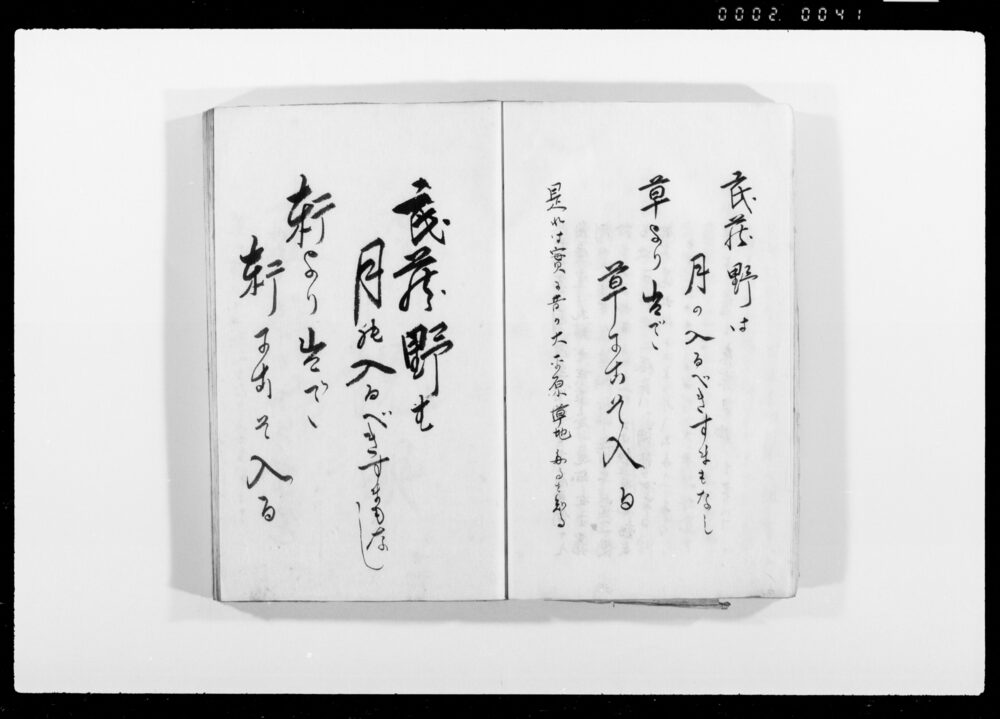 0002. 0041
武蔵野は
月の入るべきすまもなし
草より出でゝ
草にこそ入る
是れは實に昔の大平原草地
武蔵野も
月の入るべきすまもなし
軒より出でゝ
軒にこそ入る